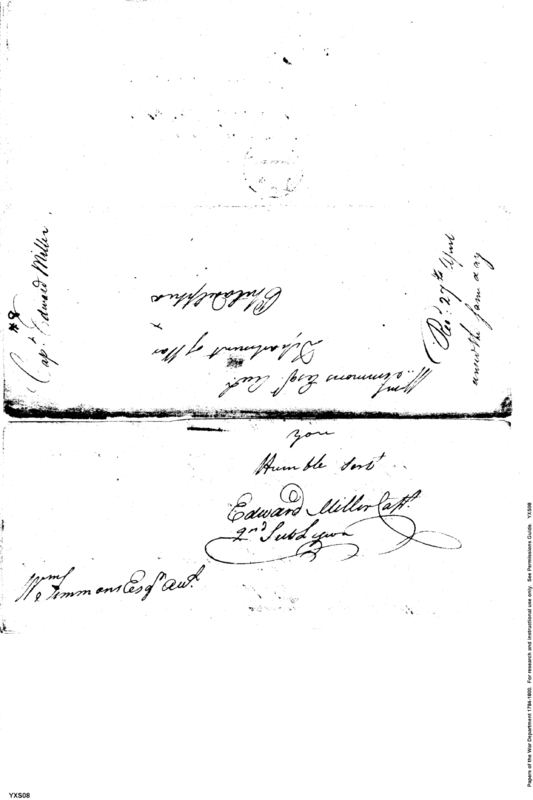 #8
Capt. Edward Miller.
Recd. 27th April
answd the same day
Wm Simmons Esqr. Acct
Department of War
Philadelphia
you
Humble Servt
Edward Miller Capt.
2nd Sub Legion
Wm Simmons Esqr
Papers of the War Department 1784-1800. For research and instructional use only. See Permissions Guide. YXS08
YXS08